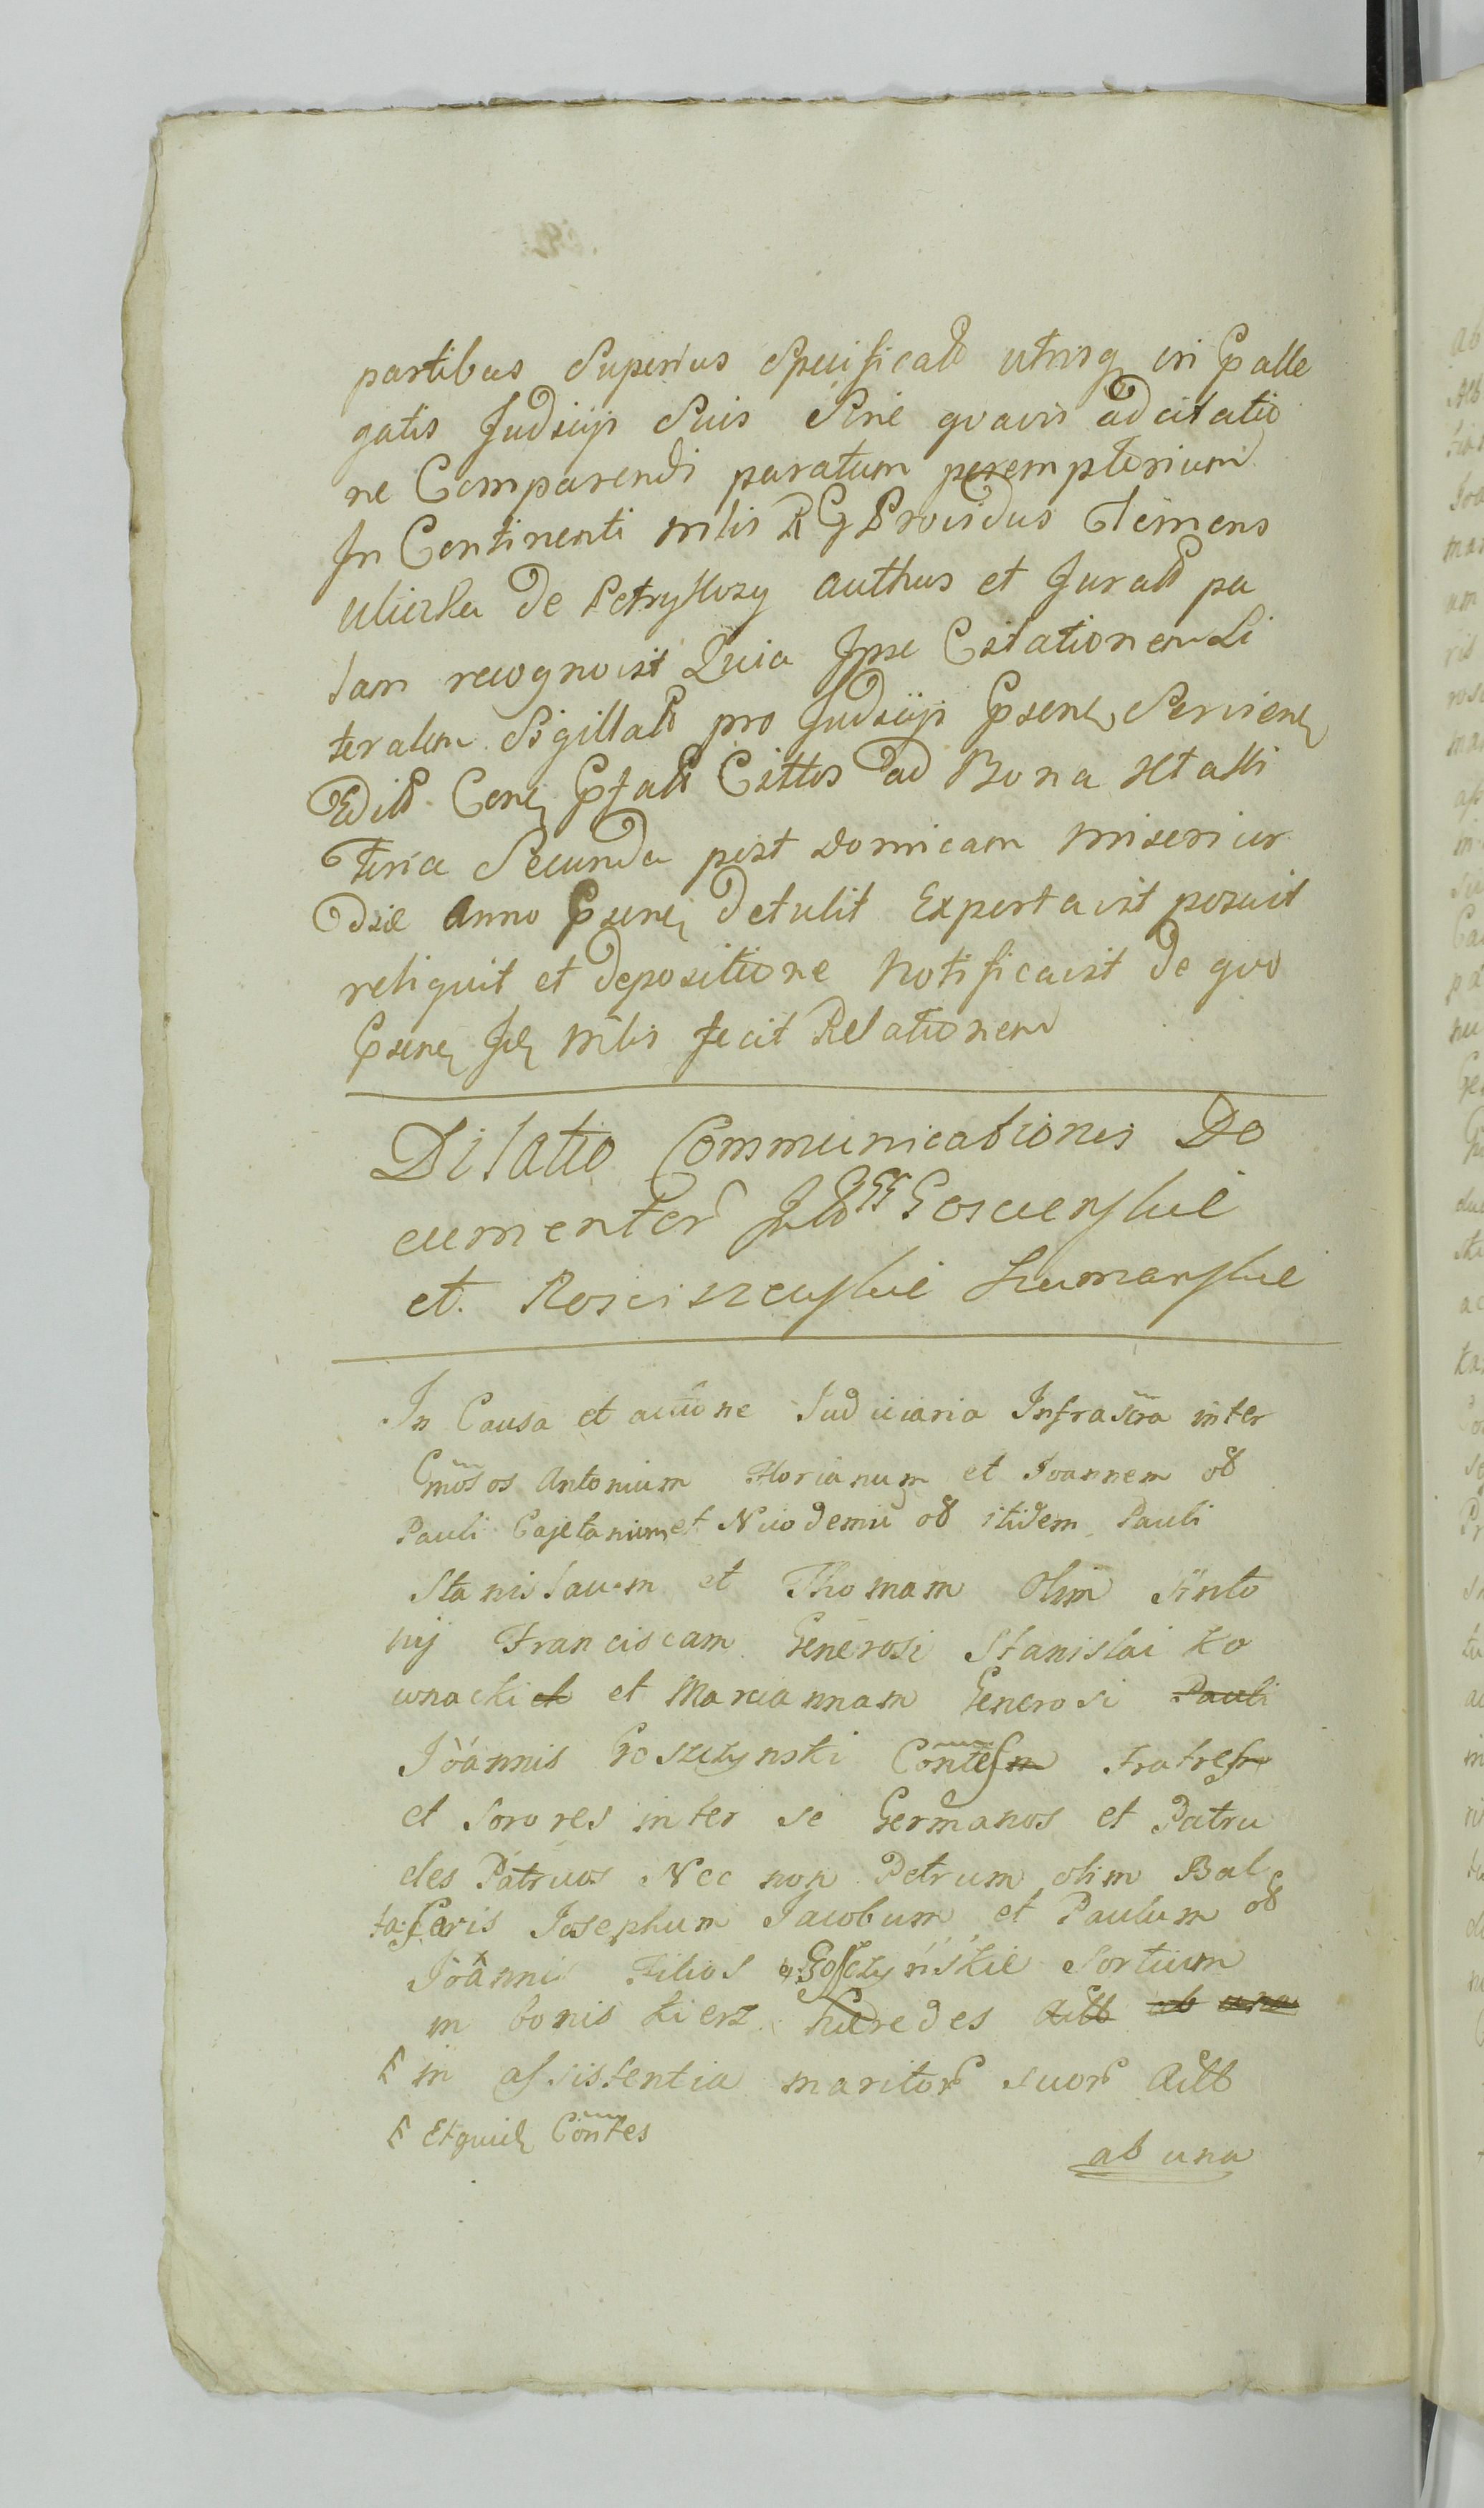 partibus Superius Specificatt utrisq in Pralle
gatis Judicijs Suis Sine quavis adcitatio
ne Comparendi paratum peremptorium
In Continenti mtlis RG Providus Clemens
de Petrykozy authus et Juratt pa
lam recognovit Quia Ipse Citationem Li
teralem Sigillatt pro Judicijs Psene Serviene
Editt Cone Pfatt Cittos ad Bona
Feria Secunda post Domicam Misericor
diae Anno Psene detulit Exportavit posuit
reliquit et depositione Notificavit de quo
Psene mtlis fecit Relationem
Dilatio Communicationis Do
cumentor
et Rosciszewskie Humanskie
In Causa et actione Judiciaria Infrascra inter
Gnosos Antonium Florianum et Joannem olg
Pauli Cajetanum et Nicodemu olg itidem Pauli
Stanislaum et Thomam Olim Anto
nij Franciscam Generosi Stanislai Ko
wnacki et Mariannam Generosi Pauli
Joannis Goszczynski Contes Fratres
et Sorores inter se Germanos et Patru
eles Patruos Nec non Petrum olim Bal
taseris Josephum Jacobum et Paulum olg
Joannis Filios Goszczyńskie Sortium
in bonis Kierz haeredes Actt ab una
in assistentia maritor suor Actt
Contes
ab una